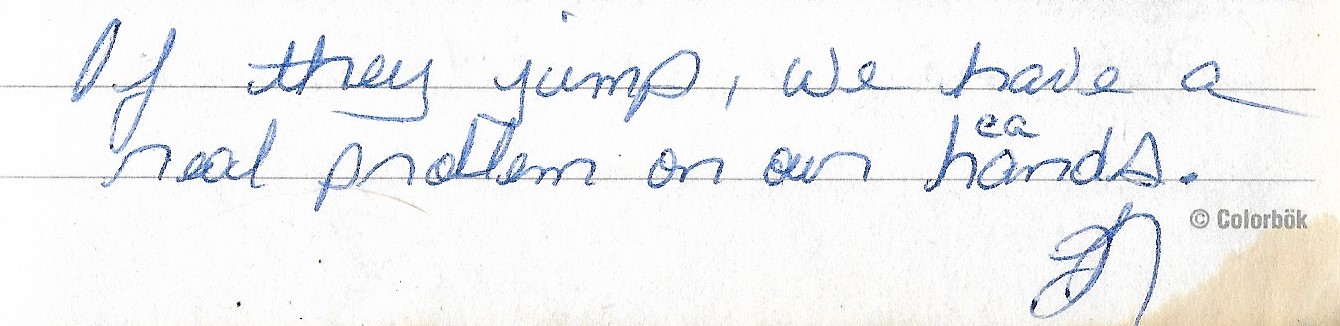 If they jump, we have a
ea
real problem on our hands.
© Colorbök